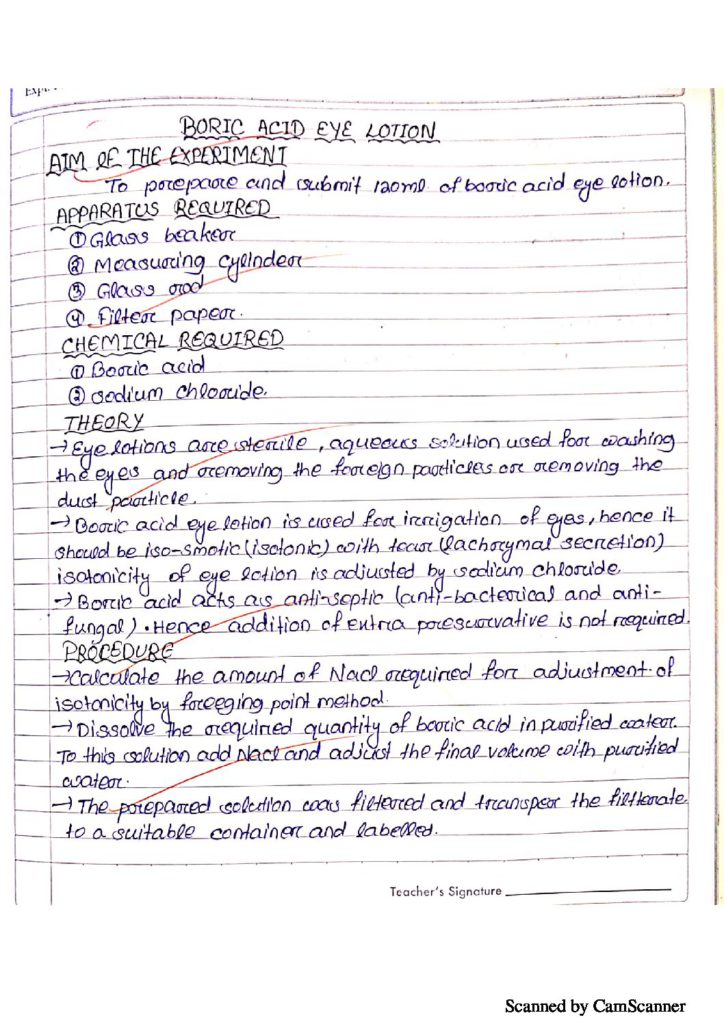 BORIC ACID EYE LOTION
AIM OF THE EXPERIMENT
To prepare and submit 120ml of boric acid eye lotion.
APPARATUS REQUIRED
① Glass beaker
② Measuring cylinder
③ Glass rod
④ Filter paper.
CHEMICAL REQUIRED
① Boric acid
② sodium chloride.
THEORY
→ Eye lotions are sterile, aqueous solution used for washing
the eyes and removing the foreign particles or removing the
dust particle.
→ Boric acid eye lotion is used for irrigation of eyes, hence it
should be iso-smotic (isotonic) with tear (lachrymal secretion)
isotonicity of eye lotion is adjusted by sodium chloride.
→ Boric acid acts as anti-septic (anti-bacterical and anti-
fungal). Hence addition of Extra preservative is not required.
PROCEDURE
→ Calculate the amount of Nacl required for adjustment of
isotonicity by freeging point method.
→ Dissolve the required quantity of boric acid in purified water.
To this solution add Nacl and adjust the final volume with purified
water.
→ The prepared solution was filtered and transper the filterate
to a suitable container and labelled.
Teacher's Signature
Scanned by CamScanner